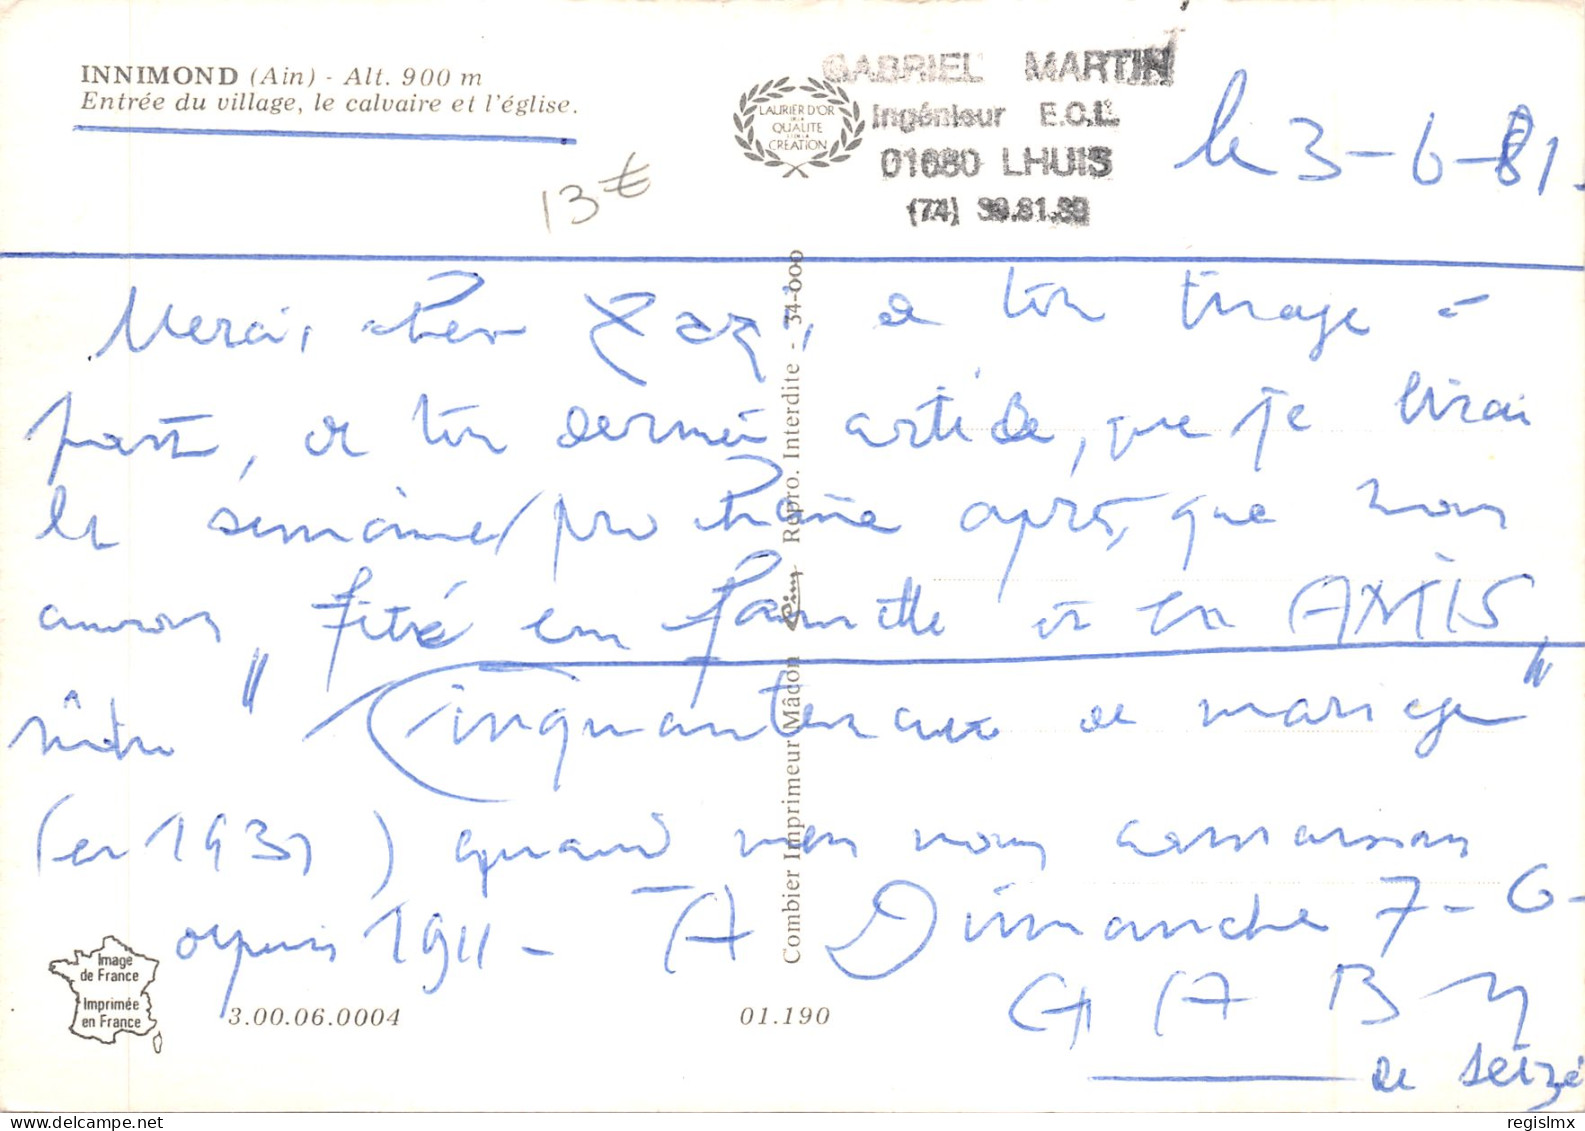 INNIMOND (Ain) - Alt. 900 m
Entrée du village, le calvaire et l'église.
LAURIER D'OR
DE LA
QUALITE
CREATION
GABRIEL MARTIN
Ingénieur E.C.L.
01680 LHUIS
(74)
le 3-6-81.
13€
Merci, cher Zazi, de ton tirage à
part, de ton dernier article, que je lirai
la semaine prochaine après, que nous
aurons fêté en famille et en AMIS,
nôtre "Cinquantenaire de mariage"
(en 1931) quand nous connaissons
depuis 1911 - A Dimanche 7-6-
GABY
de Seizé
Combier Imprimeur Mâcon Cim Repro. Interdite - 34-000
Image
de France
Imprimée
en France
3.00.06.0004
01.190
regislmx